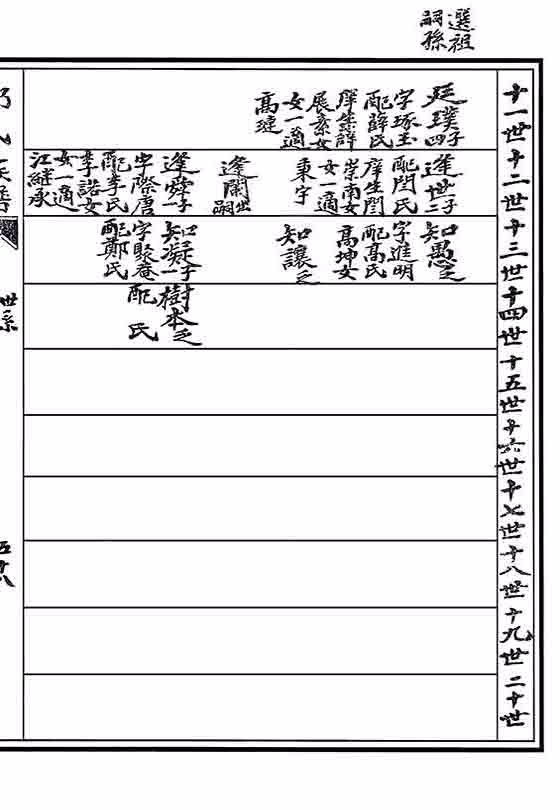 選祖
嗣孫
十一世
十二世
十三世
十四世
十五世
十六世
十七世
十八世
十九世
二十世
廷璞子四
字琢玉
配薛氏
展素女
女一適
高璉
逢世子二
配閆氏
庠生閆
崇南女
女一適
秉宇
逢闌出嗣
逢舜子一
字際唐
配李氏
李諾女
女一適
江継承
知愚乏
字進明
配高氏
高坤女
知讓乏
知凝子一
字聚菴
配鄭氏
樹本乏
配 氏
世系
五十八